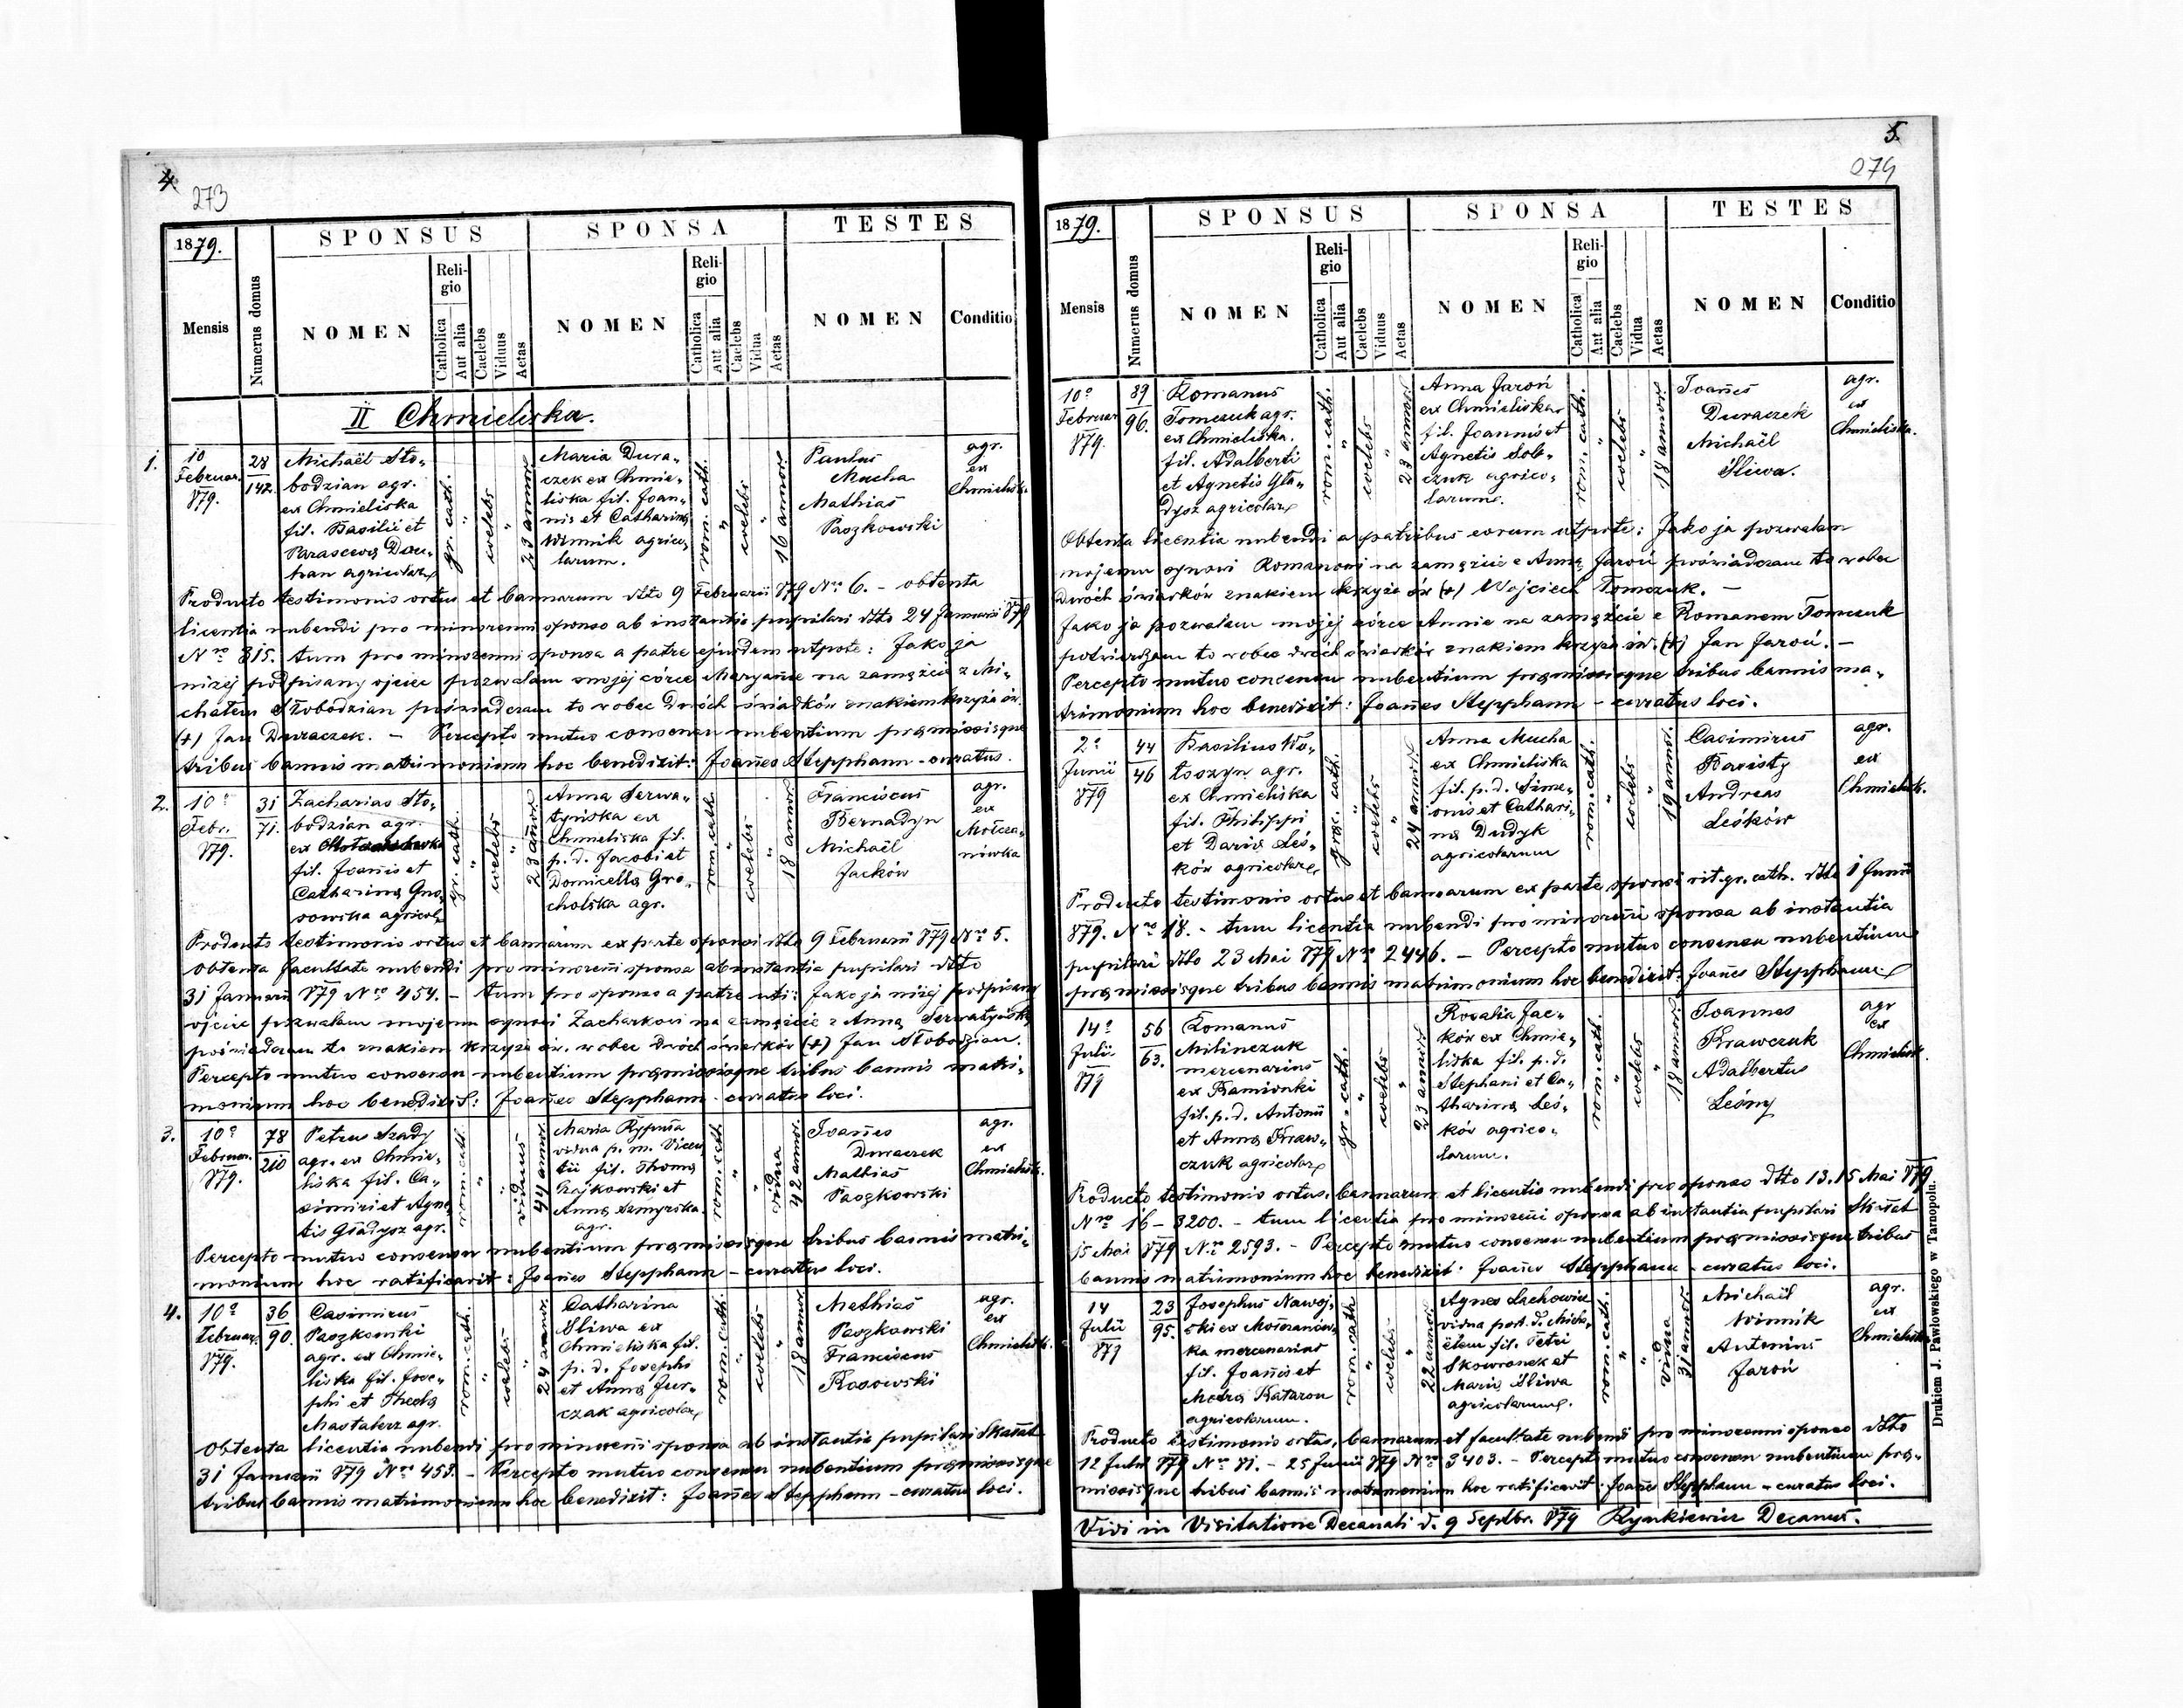 4.
273
1879.
SPONSUS
SPONSA
TESTES
Mensis
Numerus domus
NOMEN
Religio
Catholica
Aut alia
Caelebs
Viduus
Aetas
NOMEN
Religio
Catholica
Aut alia
Caelebs
Vidua
Aetas
NOMEN
Conditio
II Chmieliska.
1.
10
Februar.
879.
28
142.
Michaël Sto-
bodzian agr.
ex Chmieliska
fil. Basilii et
Parascevae
agricolar.
gr. cath.
"
coelebs
"
23 annor.
Maria Dura-
czek ex Chmie-
liska fil. Joan-
nis et Catharinae
Winnik agrico-
larum.
rom. cath.
"
coelebs
"
16 annor.
Paulus
Mucha
Mathias
Paszkowski
agr.
ex
Chmielisk.
Producto testimonio ortus et bannorum dtto 9 Februarii 879 Nro 6. - obtenta
licentia nubendi pro minorenni sponso ab instantia pupilari dtto 24 Januarii 879
Nro 315. tum pro minorenni sponsa a patre ejusdem utpote: Jako ja
niżej podpisany ojciec pozwalam mojej córce Maryannie na zamęźcie z Mi-
chałem Słobodzian poświadczam to wobec dwóch świadków znakiem krzyża św.
(+) Jan Duraczek. - Percepto mutuo consensu nubentium praemissisque
tribus bannis matrimonium hoc benedixit: Joañes Stepphann - curatus.
2.
10°
Febr.
879.
31
71.
Zacharias Sto-
bodzian agr.
ex
fil. Joañis et
Catharinae Gno-
sowska agricol.
gr. cath.
"
coelebs
"
23 añor.
Anna Serwa-
tyńska ex
Chmieliska fil.
p. d. Jacobi et
Domicellae Gro-
cholska agr.
rom. cath.
"
coelebs
"
18 annor.
Franciscus
Bernadyn
Michaël
Jacków
agr.
ex
Mołcza-
nówka
Producto testimonio ortus et bannorum ex parte sponsi dtto 9 Februarii 879 Nro 5.
obtenta facultate nubendi pro minoreñi sponsa ab instantia pupilari dtto
31 Januarii 879 Nro 454. - tum pro sponso a patre uti: Jako ja niżej podpisany
ojciec pozwalam mojemu synowi Zacharkowi na zamęźcie z Anną Serwatyńską
poświadczam to znakiem krzyża św. wobec dwóch świadków (+) Jan Słobodzian.
Percepto mutuo consensu nubentium praemissisque tribus bannis matri-
monium hoc benedixit: Joañes Stepphann - curatus loci.
3.
10°
Februar.
879.
78
210
Petrus Szady
agr. ex Chmie-
liska fil. Ca-
simiri et Agne-
tis Gładysz agr.
rom. cath.
"
"
viduus
44 annor.
Maria Rypma
vidua p. m. Vicen-
tii fil. Thomae
Grajkowski et
Annae Szmyrska
agr.
rom. cath.
"
"
vidua
42 annor.
Joañes
Duraczek
Mathias
Paszkowski
agr.
ex
Chmielisk.
Percepto mutuo consensu nubentium praemissisque tribus bannis matri-
monium hoc ratificavit: Joañes Stepphann - curatus loci.
4.
10°
Februar.
879.
36
90.
Casimirus
Paszkowski
agr. ex Chmie-
liska fil. Jose-
phi et Theclae
Mastalerz agr.
rom. cath.
"
coelebs
"
24 annor.
Catharina
Sliwa ex
Chmieliska fil.
p. d. Josephi
et Annae Jur-
czak agricolar.
rom. cath.
"
coelebs
"
18 annor.
Mathias
Paszkowski
Franciscus
Kosowski
agr.
ex
Chmielisk.
Obtenta licentia nubendi pro minoreñi sponsa ab instantia pupilari Skałat
31 Januarii 879 Nro 453. - Percepto mutuo consensu nubentium praemissisque
tribus bannis matrimonium hoc benedixit: Joañes Stepphann - curatus loci.
5.
079
1879.
SPONSUS
SPONSA
TESTES
Mensis
Numerus domus
NOMEN
Religio
Catholica
Aut alia
Caelebs
Viduus
Aetas
NOMEN
Religio
Catholica
Aut alia
Caelebs
Vidua
Aetas
NOMEN
Conditio
10°
Februar
879.
89
96.
Romanus
Tomczuk agr.
ex Chmieliska.
fil. Adalberti
et Agnetis Gła-
dysz agricolar.
rom. cath.
"
coelebs
"
23 annor.
Anna Jaroń
ex Chmieliska
fil. Joannis et
Agnetis Sob-
czuk agrico-
larum.
rom. cath.
"
coelebs
"
18 annor.
Ioañes
Duraczek
Michaël
Śliwa.
agr.
ex
Chmieliska.
Obtenta licentia nubendi a patribus eorum utpote: Jako ja pozwalam
mojemu synowi Romanowi na zamęźcie z Anną Jaroń poświadczam to wobec
dwóch świadków znakiem krzyża św (+) Wojciech Tomczuk. -
Jako ja pozwalam mojej córce Annie na zamęźcie z Romanem Tomczuk
potwierdzam to wobec dwóch świadków znakiem krzyża św. (+) Jan Jaroń. -
Percepto mutuo consensu nubentium praemissisque tribus bannis ma-
trimonium hoc benedixit: Joañes Stepphann - curatus loci.
2°
Junii
879
44
46
Basilius Wo-
łoszyn agr.
ex Chmieliska
fil. Philippi
et Dariae Leś-
ków agricolar.
graec. cath.
"
coelebs
"
24 annor.
Anna Mucha
ex Chmieliska
fil. p. d. Sime-
onis et Cathari-
nae Dudyk
agricolarum
rom. cath.
"
coelebs
"
19 annor.
Casimirus
Baristy
Andreas
Leśków
agr.
ex
Chmielisk.
Producto testimonio ortus et bannorum ex parte sponsi rit. gr. cath. dtto 1 Junii
879. Nro 18. - tum licentia nubendi pro minoreñi sponsa ab instantia
pupilari dtto 23 Mai 879 Nro 2446. - Percepto mutuo consensu nubentium
praemissisque tribus bannis matrimonium hoc benedixit: Joañes Stepphann
14°
Julii
879
56
63.
Romanus
Milinczuk
mercenarius
ex Kamionki
fil. p. d. Antonii
et Annae Kraw-
czuk agricolar.
gr. cath.
"
coelebs
"
23 annor.
Rosalia Jac-
ków ex Chmie-
liska fil. p. d.
Stephani et Ca-
tharinae Leś-
ków agrico-
larum.
rom. cath.
"
coelebs
"
18 annor.
Ioannes
Krawczuk
Adalbertus
Leśny
agr
ex
Chmielisk.
Producto testimonio ortus, bannorum et licentio nubendi pro sponso dtto 13. 15 Mai 879
Nro 16 - 3200. - tum licentia pro minoreñi sponsa ab instantia pupilari Skałat
15 Mai 879 Nro 2593. - Percepto mutuo consensu nubentium praemissisque tribus
bannis matrimonium hoc benedixit: Joañes Stepphann - curatus loci.
14
Julii
879
23
95.
Josephus Nawoj-
ski ex Mołczanów-
ka mercenarius
fil. Joañis et
Katazon
agricolarum.
rom. cath
"
coelebs
"
22 annor.
Agnes Lachowicz
vidua post. d. Micha-
ëlem fil. Petri
Skowronek et
Mariae Sliwa
agricolarum.
rom. cath.
"
"
vidua
31 annor.
Michaël
Winnik
Antonius
Jaroń
agr.
ex
Chmielisk.
Producto testimonio ortus, bannorum et facultate nubendi pro minorenni sponso dtto
12 Julii 879 Nro 81. - 25 Junii 879 Nro 3403. - Percepto mutuo consensu nubentium prae-
missisque tribus bannis matrimonium hoc ratificavit: Joañes Stepphann - curatus loci.
Vidi in Visitatione Decanali d. 9 Septbr. 879 Rynkiewicz Decanus.
Drukiem J. Pawłowskiego w Tarnopolu.